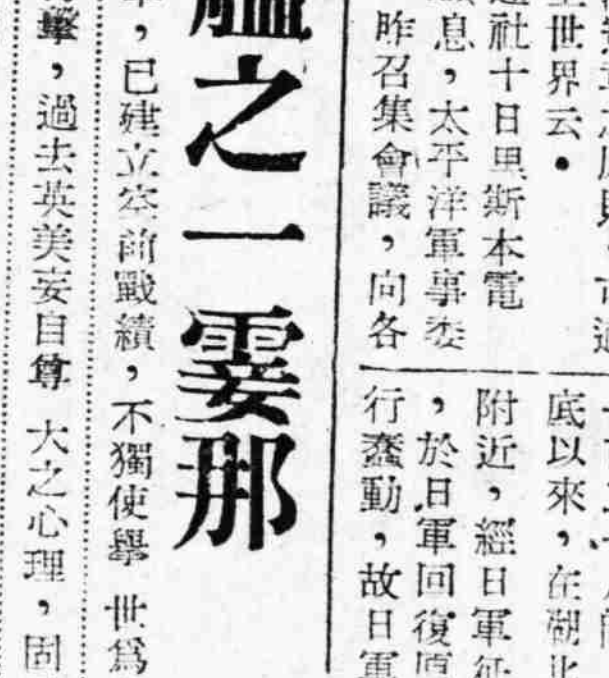 世界云。
社十日里斯本電
息，太平洋軍事委
昨召集會議，向各
底以來，在湖北
附近，經日軍征
，於日軍回復原
行蠢動，故日軍
之一霎那
，已建立空前戰績，不獨使舉世爲
擊，過去英美妄自尊大之心理，固